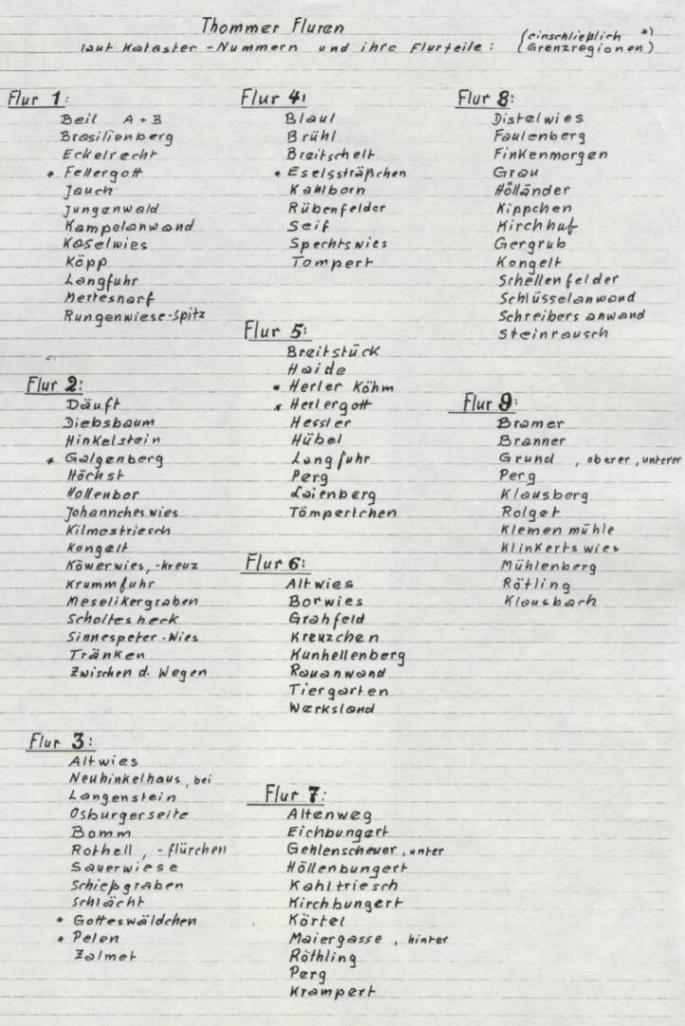 Thommer Fluren
laut Kataster-Nummern und ihre Flurteile: (einschließlich *)
(Grenzregionen)
Flur 1:
Beil A+B
Brasilienberg
Eckelrecht
* Fellergott
Jauch
Jungenwald
Kampelanwand
Kaselwies
Köpp
Langfuhr
Mertesnarf
Rungenwiese-Spitz
Flur 2:
Däuft
Diebsbaum
Hinkelstein
* Galgenberg
Höchst
Hollenbor
Johanncheswies
Kilmestriesch
Kongelt
Köwerwies, -kreuz
Krummfuhr
Meselikergraben
Scholtesheck
Sinnespeter-Wies
Tränken
Zwischen d. Wegen
Flur 3:
Altwies
Neuhinkelhaus, bei
Langenstein
Osburgerseite
Bomm
Rothell, -flürchen
Sauerwiese
Schießgraben
Schlächt
* Gotteswäldchen
* Pelen
Zalmet
Flur 4:
Blaul
Brühl
Breitschelt
* Eselssträßchen
Kahlborn
Rübenfelder
Seif
Spechtswies
Tompert
Flur 5:
Breitstück
Haide
* Herler Köhm
* Herlergott
Hessler
Hübel
Langfuhr
Perg
Laienberg
Tömpertchen
Flur 6:
Altwies
Borwies
Grahfeld
Kreuzchen
Kunhellenberg
Rauanwand
Tiergarten
Werksland
Flur 7:
Altenweg
Eichbungert
Gehlenscheuer, unter
Höllenbungert
Kahltriesch
Kirchbungert
Körtel
Maiergasse, hinter
Röthling
Perg
Krampert
Flur 8:
Distelwies
Faulenberg
Finkenmorgen
Grau
Holländer
Kippchen
Kirchhuf
Gergrub
Kongelt
Schellenfelder
Schlüsselanwand
Schreibersanwand
Steinrausch
Flur 9:
Bramer
Branner
Grund, oberer, unterer
Perg
Klausberg
Rolget
Klemenmühle
Klinkertswies
Mühlenberg
Rötling
Klausbach